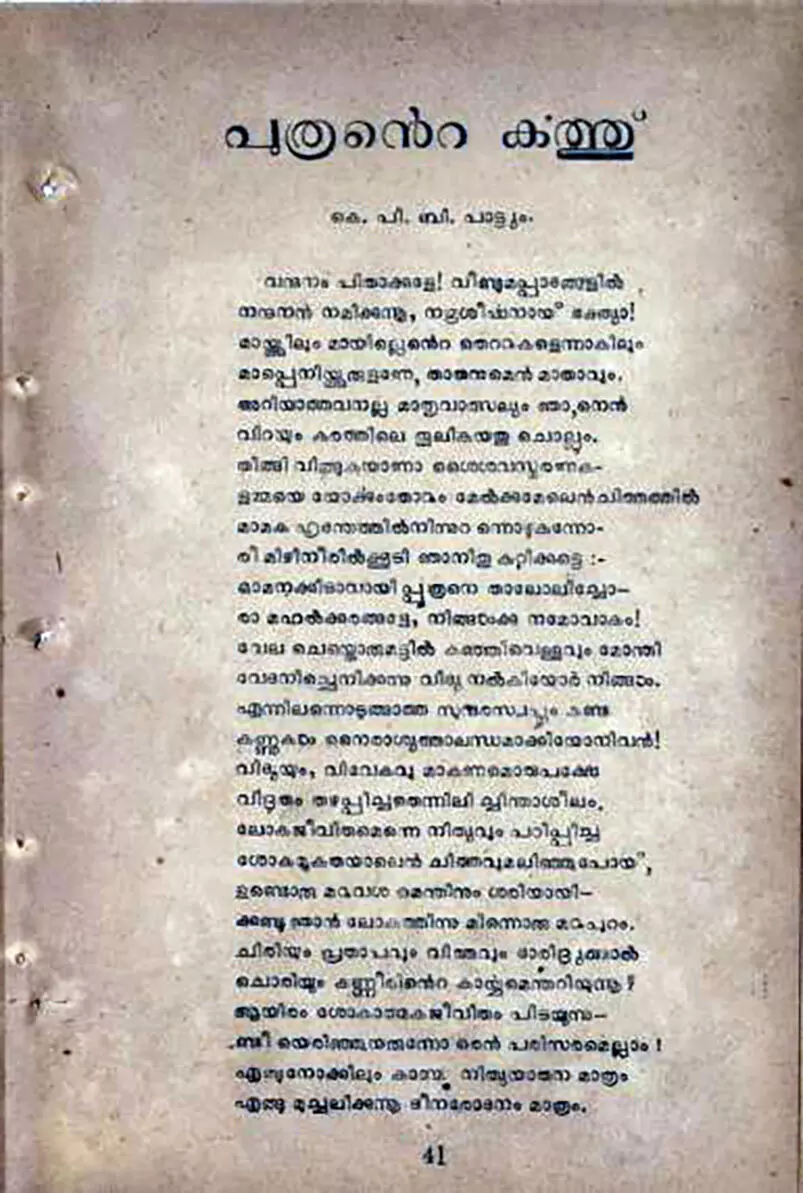 പുത്രൻെറ കത്ത്
കെ. പി. ബി. പാട്യം.
വന്ദനം പിതാക്കളേ! വീണ്ടുമപ്പാദങ്ങളിൽ
നന്ദനൻ നമിക്കുന്നൂ, നമ്രശീർഷനായ് ഭക്ത്യാ!
മായ്ക്കിലും മായില്ലെൻെറ തെററുകളെന്നാകിലും
മാപ്പെനിയ്ക്കരുളണേ, താതനുമെൻ മാതാവും.
അറിയാത്തവനല്ല മാതൃവാത്സല്യം ഞാ,നെൻ
വിറയും കരത്തിലെ തൂലികയതു ചൊല്ലും.
തിങ്ങി വിങ്ങുകയാണാ ശൈശവസ്മരണക-
ളമ്മയെ യോർക്കുംതോറും മേൽക്കുമേലെൻചിത്തത്തിൽ
മാമക ഹൃത്തത്തിൽനിന്നൂറ
രി മിഴിനീരിൽക്കൂടി ഞാനിതു കുറിക്കട്ടെ :-
ഓമനക്കിടാവായി പ്പുത്രനെ താലോലിച്ചോ-
രാ മഹൽക്കരങ്ങളേ, നിങ്ങൾക്കു നമോവാകം!
വേല ചെയ്തൊരുമട്ടിൽ കഞ്ഞിവെള്ളവും മോന്തി
വേദനിച്ചെനിക്കന്നു വിദ്യ നൽകിയോർ നിങ്ങൾ.
എന്നിലന്നൊടുങ്ങാത്ത സുന്ദരസ്വപ്നം കണ്ട
കണ്ണുകൾ നൈരാശ്യത്താലന്ധമാക്കിയോനിവൻ!
വിദ്യയും, വിവേകവു മാകണമൊരുപക്ഷേ
വിദ്രുതം തഴപ്പിച്ചതെന്നിലി ച്ചിന്താശീലം.
ലോകജീവിതമെന്നെ നിത്യവും പഠിപ്പിച്ച
ശോകമൂകതയാലെൻ ചിത്തവുമലിഞ്ഞുപോയ്,
ഉണ്ടൊരു മറുവശ മെന്തിനും ശരിയായി-
ക്കണ്ടു ഞാൻ ലോകത്തിന്നു മിന്നൊരു മറുപുറം.
ചിരിയും പ്രതാപവും വിത്തവും ദാരിദ്ര്യത്താൽ
ചൊരിയും കണ്ണീരിൻെറ കാര്യമെന്തറിയുന്നൂ ?
ആയിരം ശോകാത്മകജീവിതം പിടയുന്നു-
ണ്ടീ യെരിഞ്ഞുയരുന്നോ രെൻ പരിസരമെല്ലാം !
എങ്ങുനോക്കിലും കാണ്മൂ നിത്യയാതന മാത്രം
എങ്ങു മുച്ചലിക്കുന്നൂ ദീനരോദനം മാത്രം.
41